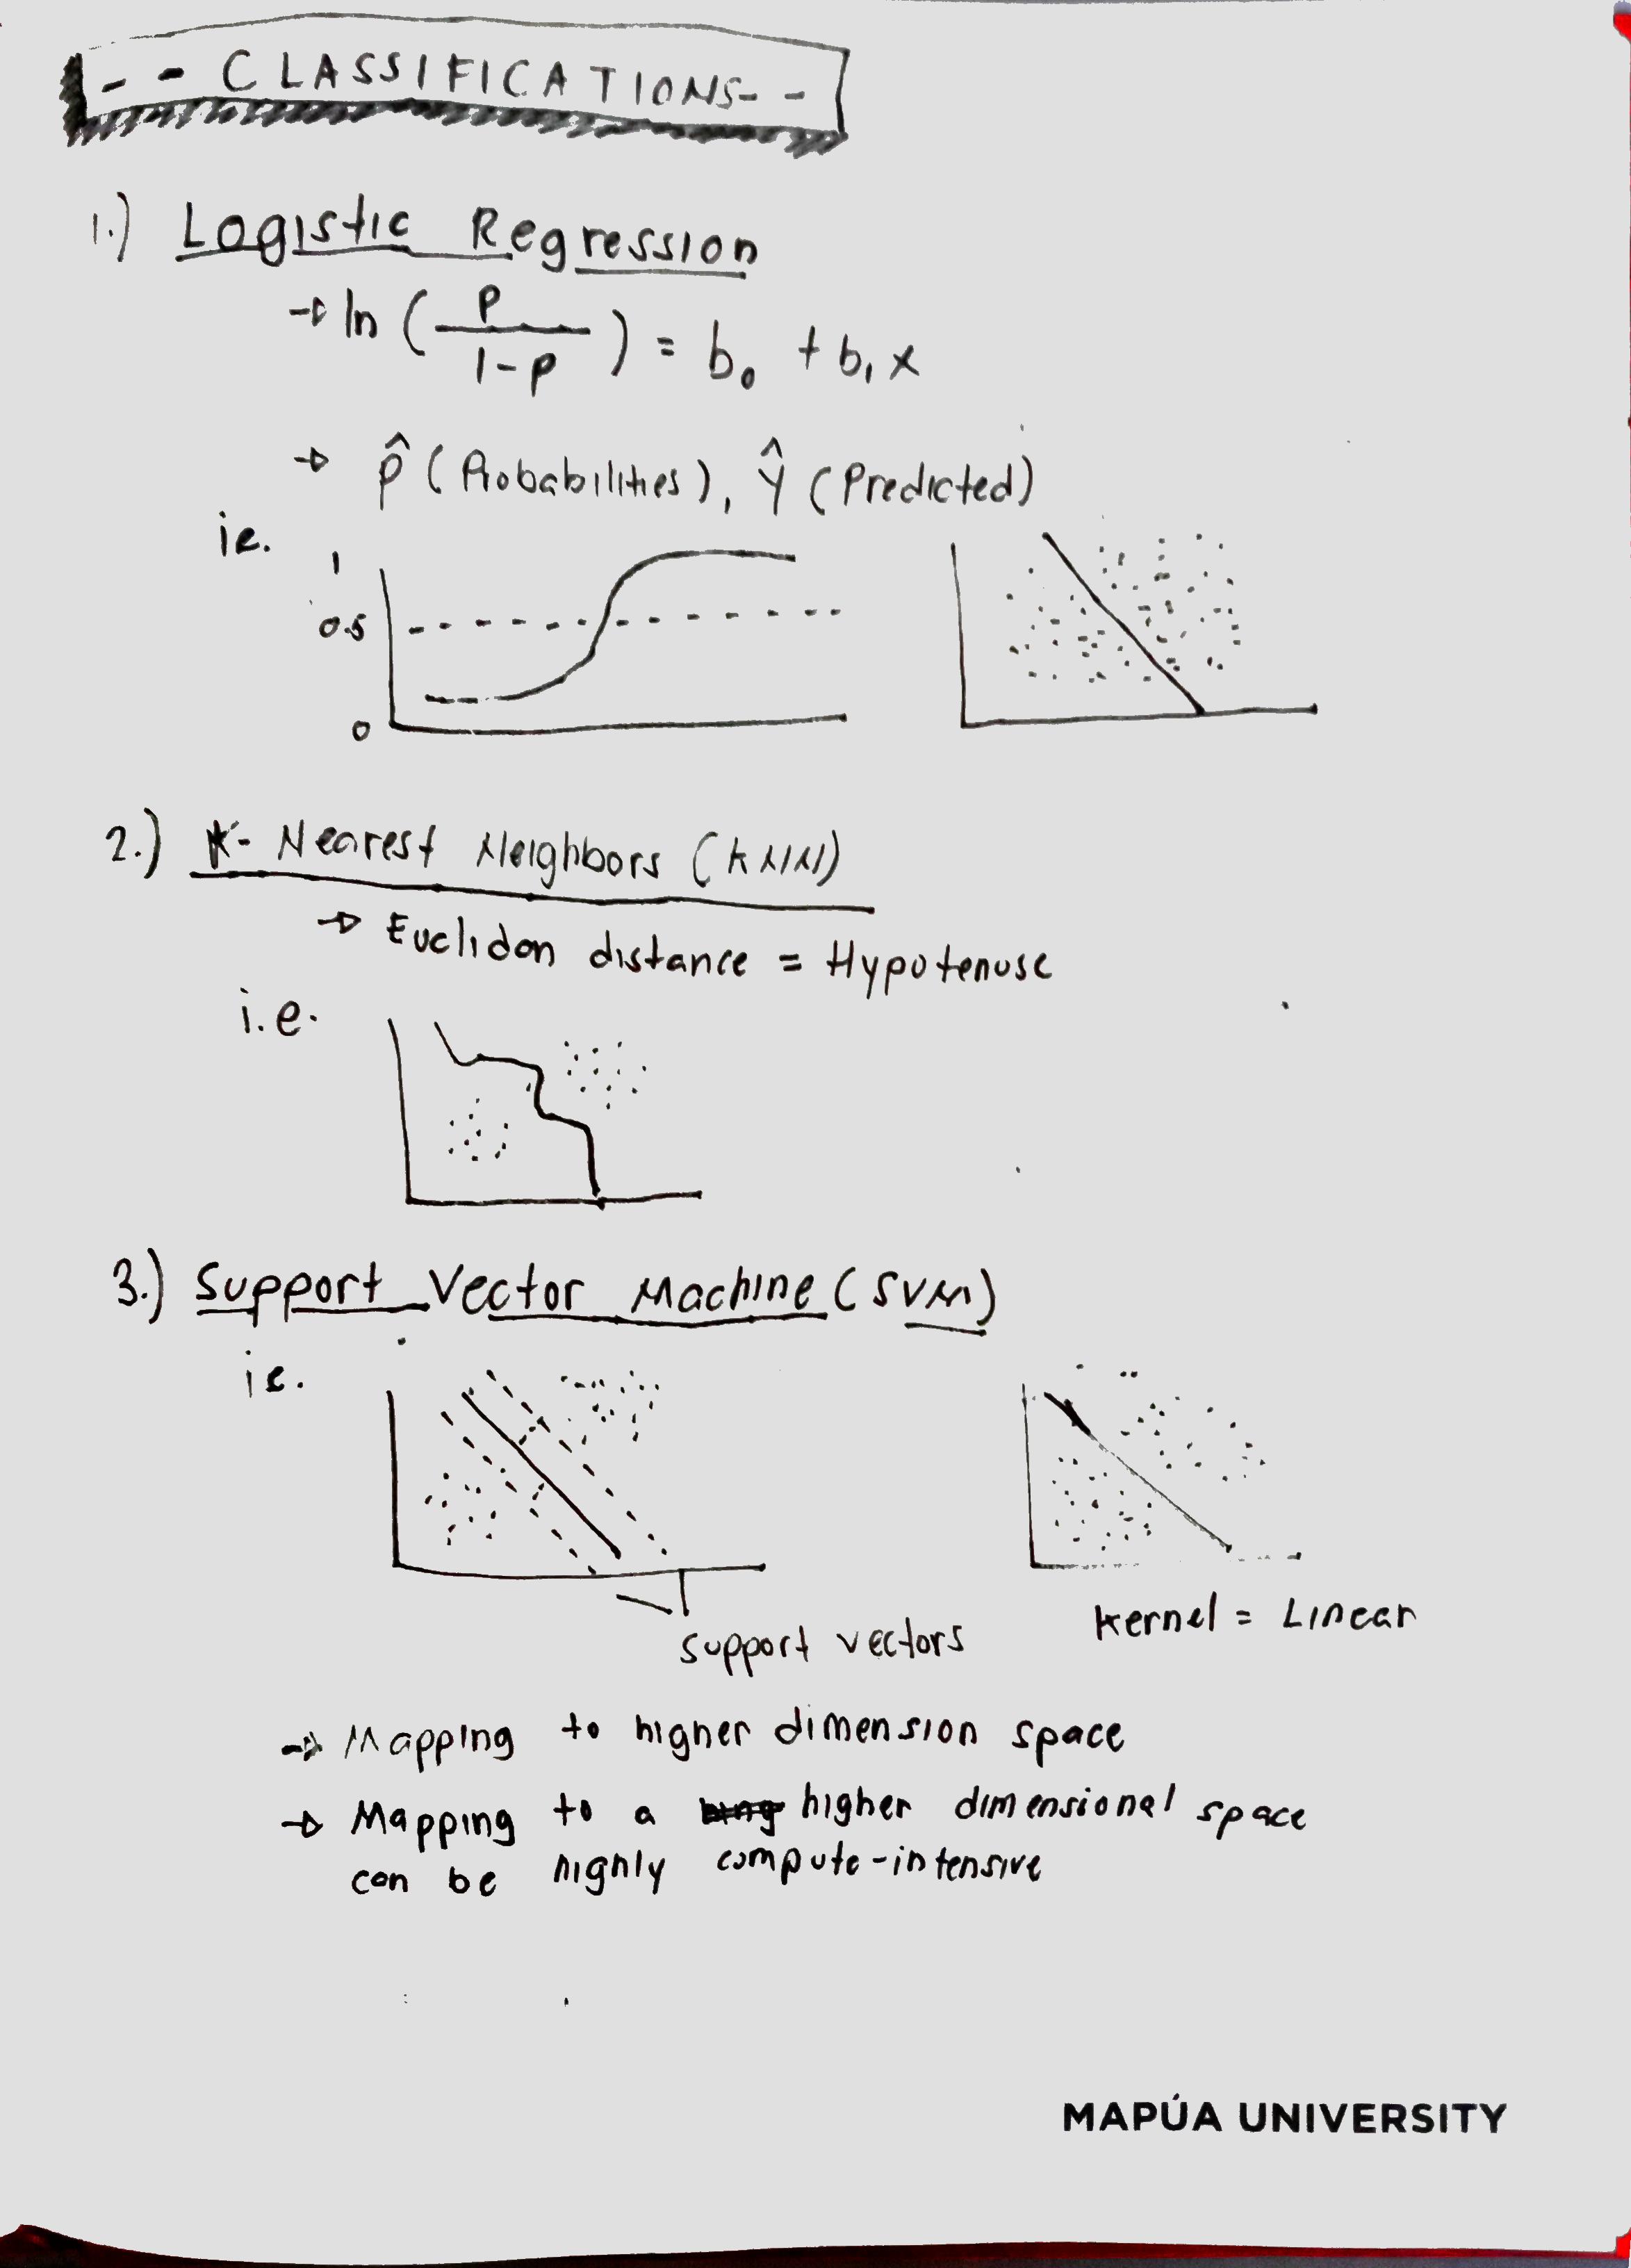 - - CLASSIFICATIONS - -
1.) Logistic Regression
→ ln ( p / 1-p ) = b₀ + b₁x
→ p̂ (Probabilities), ŷ (Predicted)
ie.
1
0.5
0
2.) K- Nearest Neighbors (KNN)
→ Euclidan distance = Hypotenuse
i.e.
3.) Support Vector Machine (SVM)
ie.
support vectors
Kernel = Linear
→ Mapping to higher dimension space
→ Mapping to a higher dimensional space
can be highly compute-intensive
MAPÚA UNIVERSITY